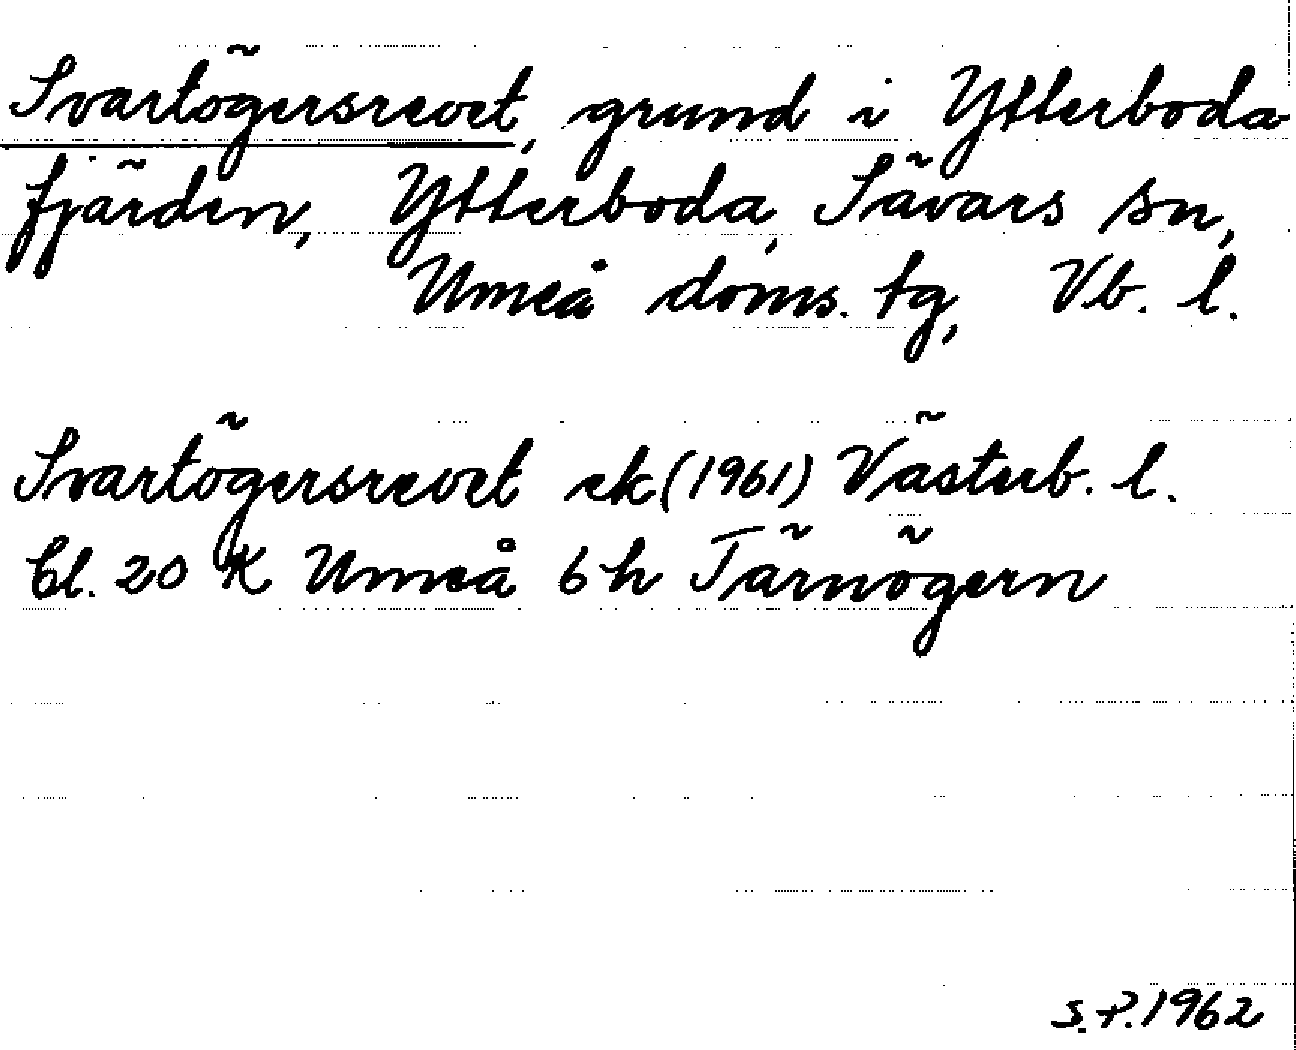 Svartögersrevet, grund i Ytterboda
fjärden, Ytterboda, Sävars sn,
Umeå doms. tg, Vb. l.
Svartögersrevet ek (1961) Västerb. l.
bl. 20 K Umeå 6 h Tärnögern
S.P. 1962